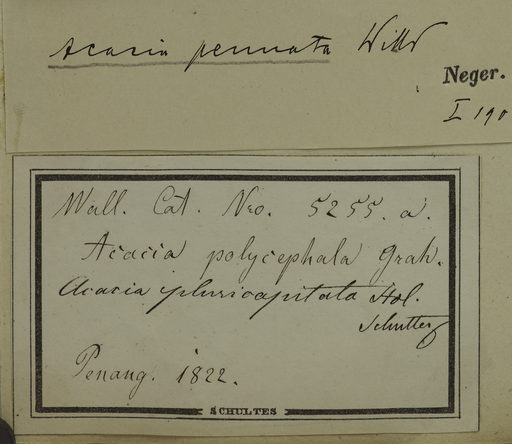 Acacia pennata Willd
Neger.
I 190
Wall. Cat. Nro. 5255. a.
Acacia polycephala Grah.
Acacia pluricapitata
Penang. 1822.
SCHULTES